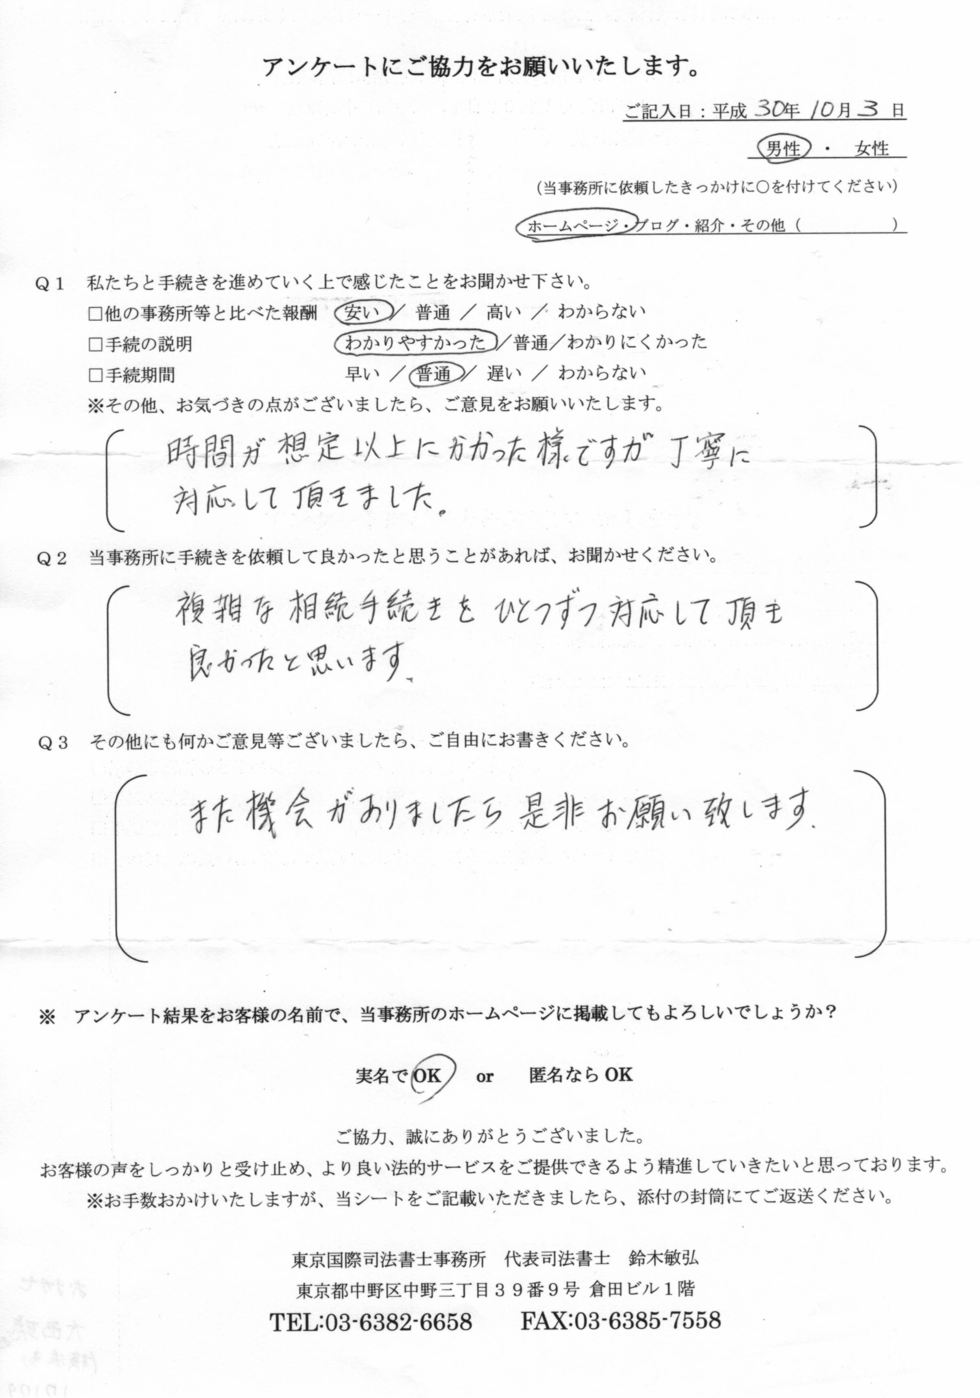 アンケートにご協力をお願いいたします。
ご記入日：平成 30年 10月 3 日
男性 ・ 女性
（当事務所に依頼したきっかけに〇を付けてください）
ホームページ・ブログ・紹介・その他（　　　　　）
Ｑ１　私たちと手続きを進めていく上で感じたことをお聞かせ下さい。
□他の事務所等と比べた報酬　安い ／ 普通 ／ 高い ／ わからない
□手続の説明　わかりやすかった ／普通／わかりにくかった
□手続期間　早い ／ 普通 ／ 遅い ／ わからない
※その他、お気づきの点がございましたら、ご意見をお願いいたします。
時間が想定以上にかかった様ですが丁寧に
対応して頂きました。
Ｑ２　当事務所に手続きを依頼して良かったと思うことがあれば、お聞かせください。
複雑な相続手続きをひとつずつ対応して頂き
良かったと思います。
Ｑ３　その他にも何かご意見等ございましたら、ご自由にお書きください。
また機会がありましたら是非お願い致します。
※　アンケート結果をお客様の名前で、当事務所のホームページに掲載してもよろしいでしょうか？
実名でOK　or　匿名なら OK
ご協力、誠にありがとうございました。
お客様の声をしっかりと受け止め、より良い法的サービスをご提供できるよう精進していきたいと思っております。
※お手数おかけいたしますが、当シートをご記載いただきましたら、添付の封筒にてご返送ください。
東京国際司法書士事務所　代表司法書士　鈴木敏弘
東京都中野区中野三丁目３９番９号 倉田ビル１階
TEL:03-6382-6658　FAX:03-6385-7558